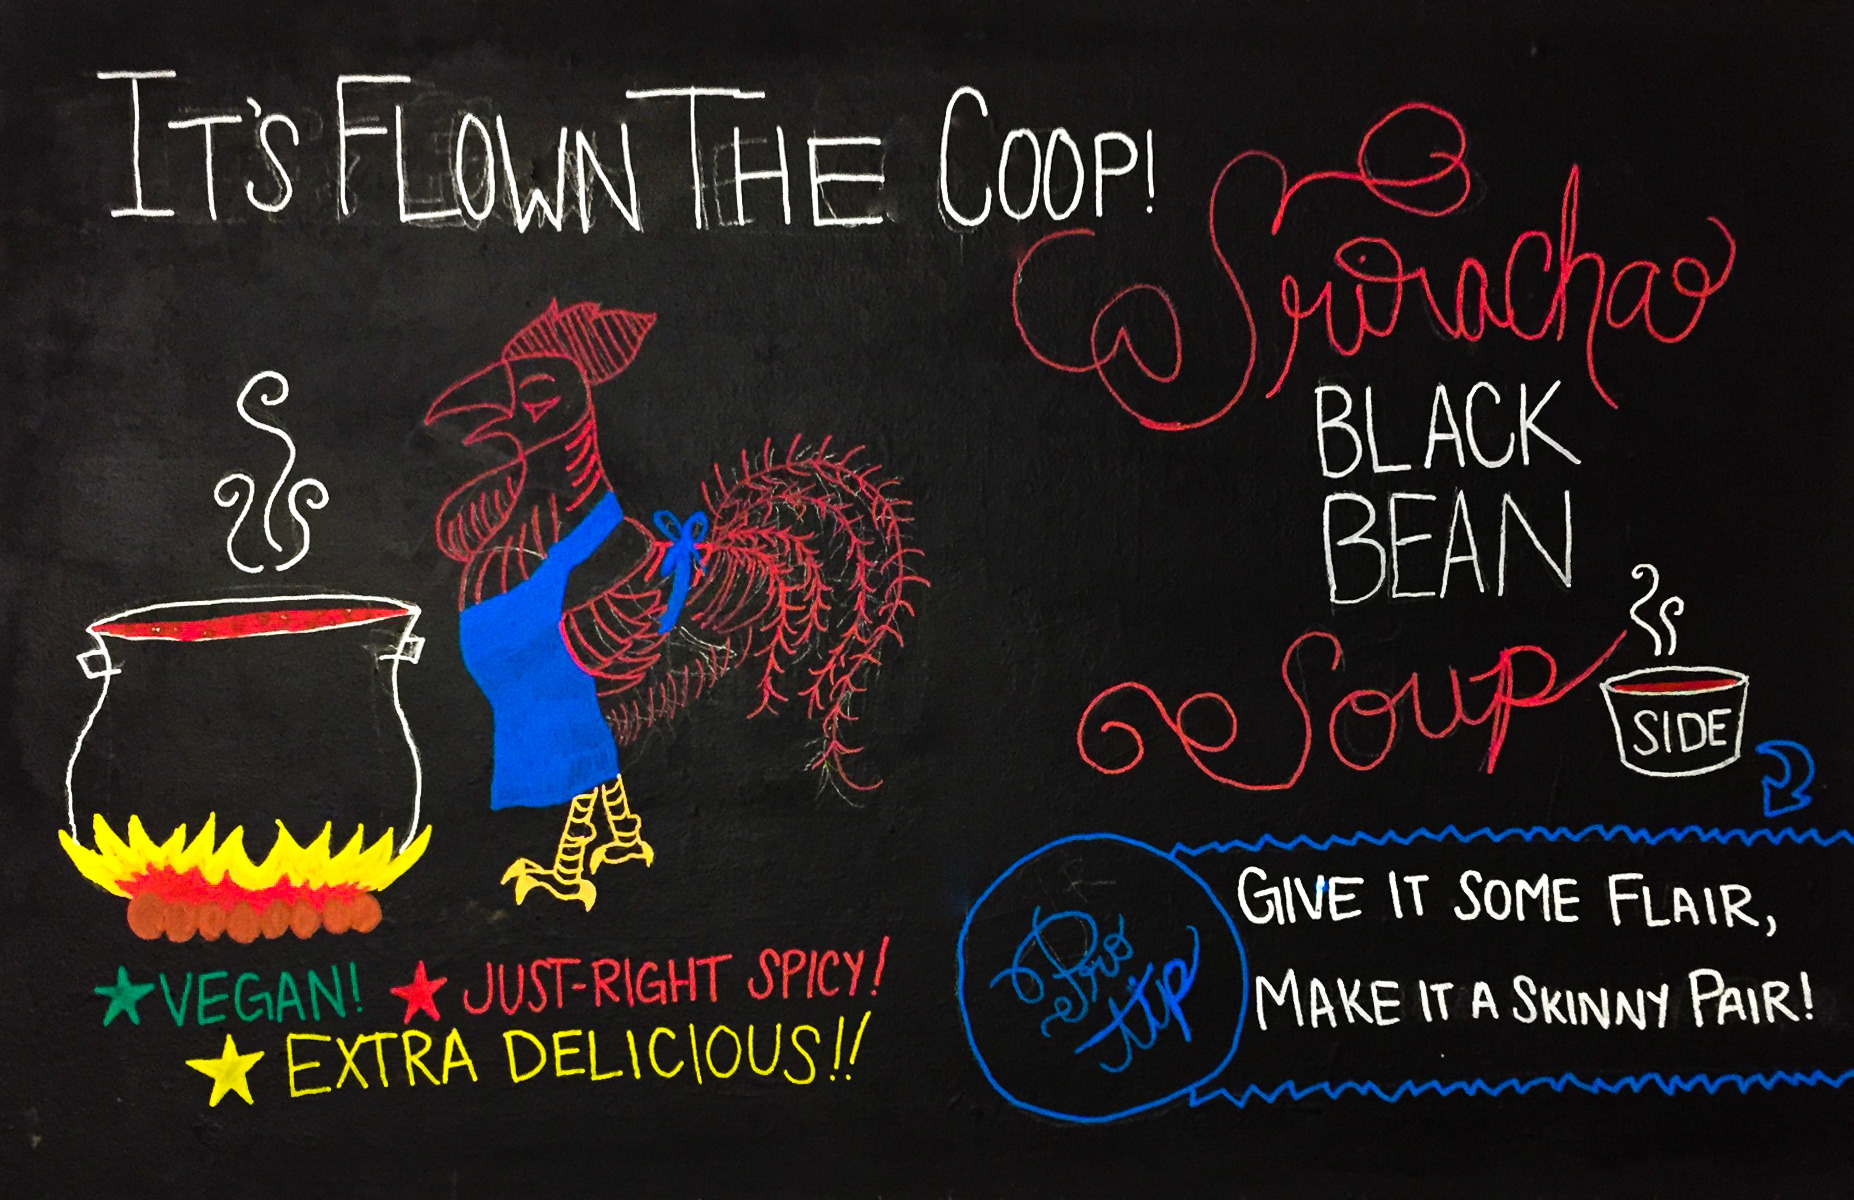 IT'S FLOWN THE COOP!
Sriracha
BLACK
BEAN
Soup
SIDE
★VEGAN! ★JUST-RIGHT SPICY!
★EXTRA DELICIOUS!!
Pro
tip
GIVE IT SOME FLAIR,
MAKE IT A SKINNY PAIR!